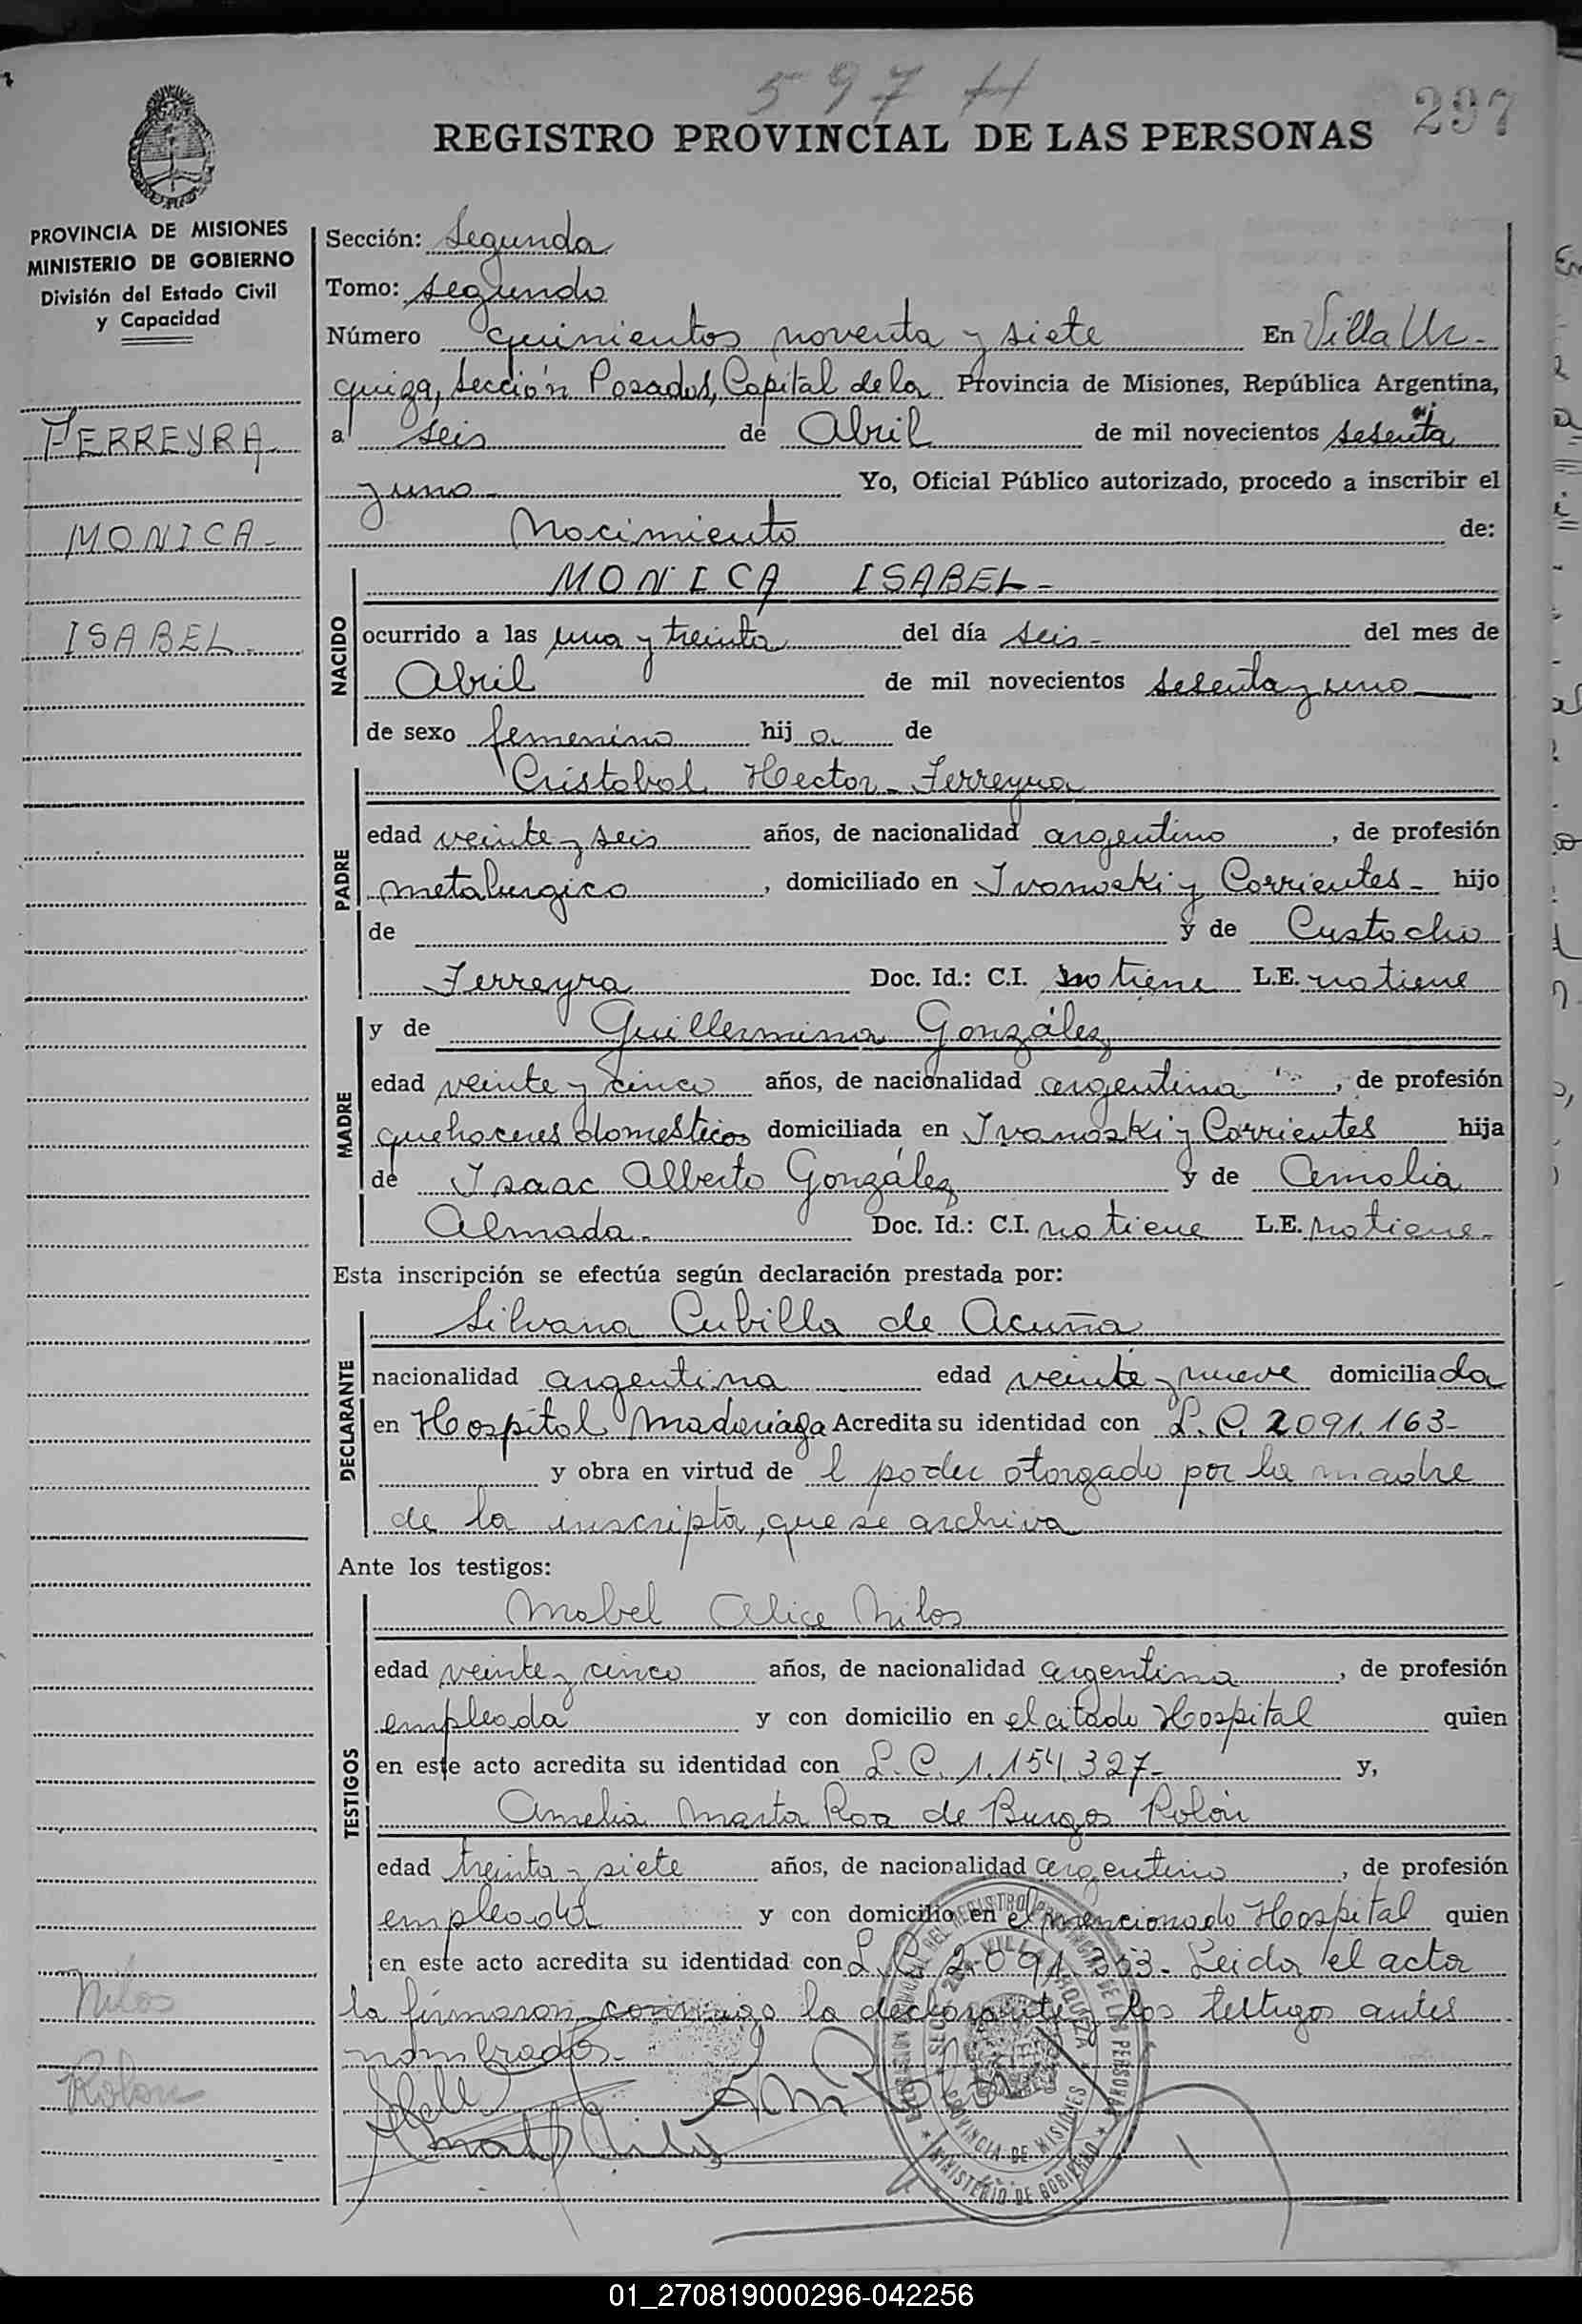 597 H
297
REGISTRO PROVINCIAL DE LAS PERSONAS
PROVINCIA DE MISIONES
MINISTERIO DE GOBIERNO
División del Estado Civil
y Capacidad
FERREYRA
MONICA-
ISABEL-
Sección: Segunda
Tomo: segundo
Número quinientos noventa y siete En Villa Ur-
quiza, sección Posadas, Capital de la Provincia de Misiones, República Argentina,
a seis de Abril de mil novecientos sesenta
y uno- Yo, Oficial Público autorizado, procedo a inscribir el
Nacimiento de:
NACIDO
MONICA ISABEL-
ocurrido a las una y treinta del día seis- del mes de
Abril de mil novecientos sesenta y uno
de sexo femenino hij a de
PADRE
Cristobal Hector Ferreyra
edad veinte y seis años, de nacionalidad argentino, de profesión
metalurgico, domiciliado en Ivanoski y Corrientes- hijo
de y de Custodia
Ferreyra Doc. Id.: C.I. no tiene L.E. no tiene
MADRE
y de Guillermina González
edad veinte y cinco años, de nacionalidad argentina, de profesión
quehaceres domesticos domiciliada en Ivanoski y Corrientes hija
de Isaac Alberto González y de Amalia
Almada- Doc. Id.: C.I. no tiene L.E. no tiene-
Esta inscripción se efectúa según declaración prestada por:
DECLARANTE
Silvana Cubilla de Acuña
nacionalidad argentina edad veinte y nueve domiciliada
en Hospital Madariaga Acredita su identidad con L.C. 2091.163-
y obra en virtud de l poder otorgado por la madre
de la inscripta, que se archiva
Ante los testigos:
TESTIGOS
Mabel Alice Nilos
edad veinte y cinco años, de nacionalidad argentina, de profesión
empleada y con domicilio en el citado Hospital quien
en este acto acredita su identidad con L.C. 1.154.327- y,
Amelia Marta Roa de Burgos Rolón
edad treinta y siete años, de nacionalidad argentina, de profesión
empleada y con domicilio en el mencionado Hospital quien
en este acto acredita su identidad con L.C. 2.091. Leida el acta
la firmaron conmigo la declarante y los testigos antes
nombrados-
Nilos
Rolon
PROVINCIA DE MISIONES
MINISTERIO DE GOBIERNO
01_270819000296-042256